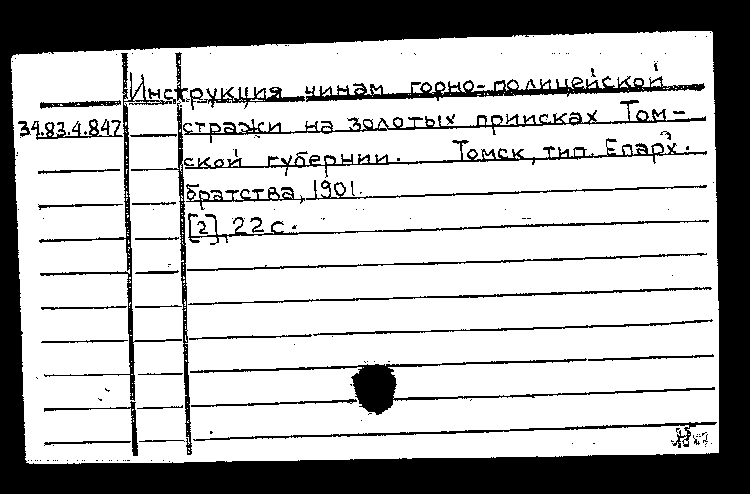 Инструкция чинам горно-полицейской
34.83.4.847 стражи на золотых приисках Том-
ской губернии. Томск, тип. Епарх.
братства, 1901.
[2], 22 с.